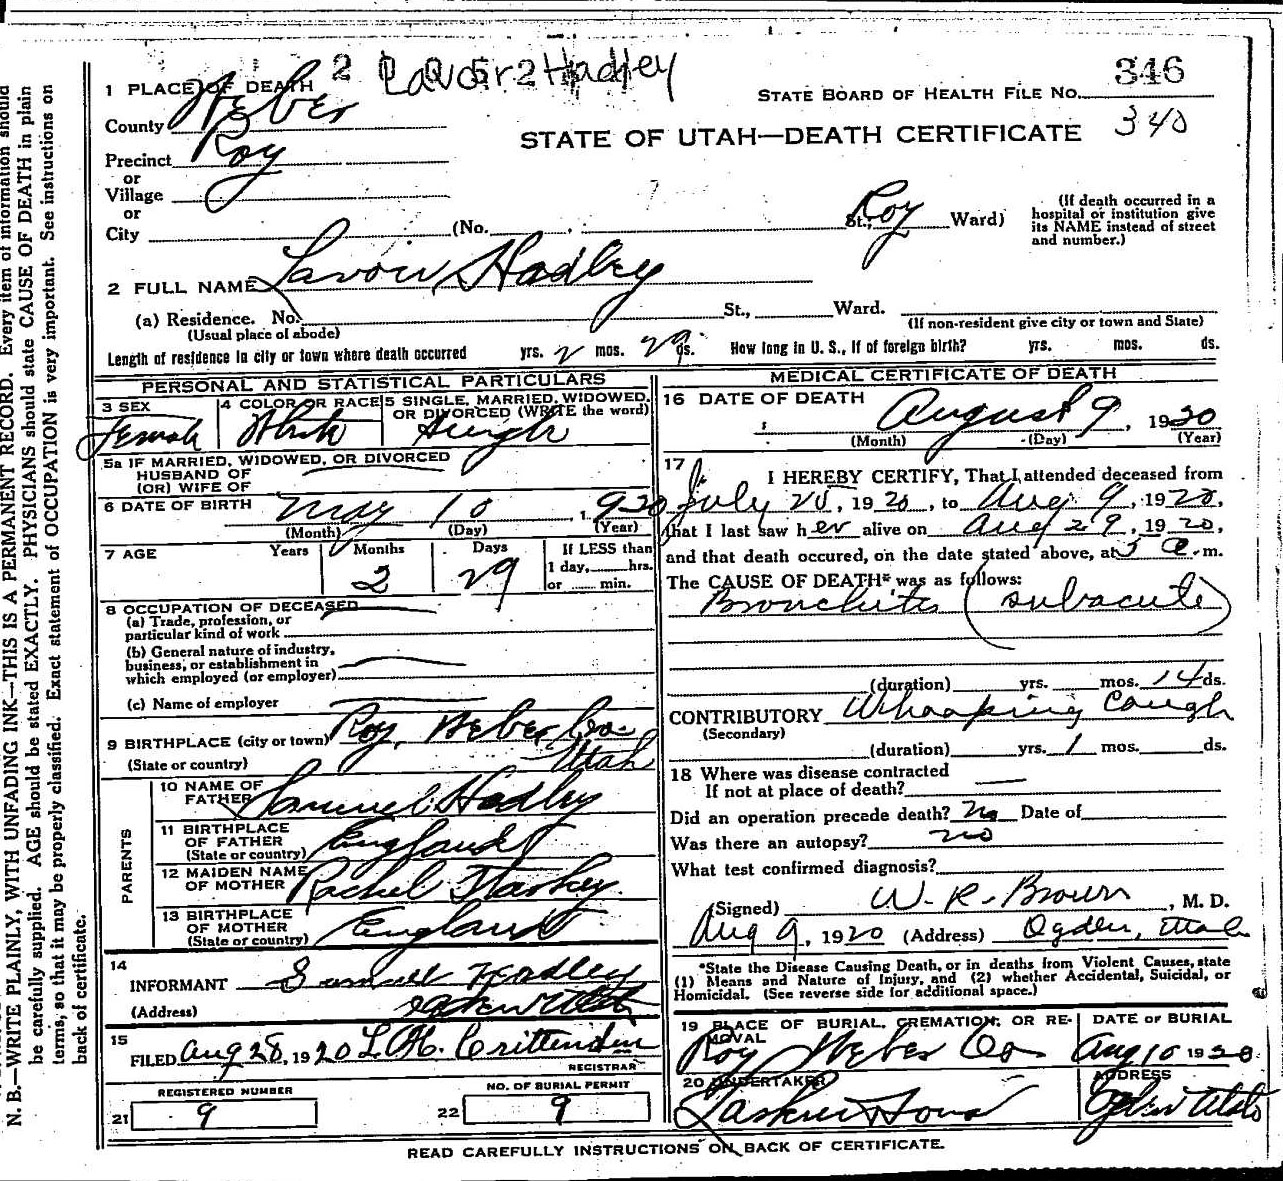 2 Lavon 2 Hadley
346
1 PLACE OF DEATH
STATE BOARD OF HEALTH FILE NO.
County Weber
STATE OF UTAH—DEATH CERTIFICATE 340
Precinct Roy
or
Village
or
City (No. , St.; Roy Ward)
(If death occurred in a hospital or institution give its NAME instead of street and number.)
2 FULL NAME Lavon Hadley
(a) Residence. No. St., Ward.
(Usual place of abode) (If non-resident give city or town and State)
Length of residence in city or town where death occurred yrs. 2 mos. 29 ds. How long in U. S., if of foreign birth? yrs. mos. ds.
PERSONAL AND STATISTICAL PARTICULARS
3 SEX Female
4 COLOR OR RACE White
5 SINGLE, MARRIED, WIDOWED, OR DIVORCED (WRITE the word) Single
5a IF MARRIED, WIDOWED, OR DIVORCED
HUSBAND OF
(OR) WIFE OF
6 DATE OF BIRTH May 10 , 1920
(Month) (Day) (Year)
7 AGE Years Months Days If LESS than
2 29 1 day, hrs.
or min.
8 OCCUPATION OF DECEASED
(a) Trade, profession, or
particular kind of work
(b) General nature of industry,
business, or establishment in
which employed (or employer)
(c) Name of employer
9 BIRTHPLACE (city or town) Roy, Weber Co.
(State or country) Utah
PARENTS
10 NAME OF FATHER Samuel Hadley
11 BIRTHPLACE OF FATHER
(State or country) England
12 MAIDEN NAME OF MOTHER Rachel
13 BIRTHPLACE OF MOTHER
(State or country) England
14
INFORMANT Samuel Hadley
(Address) Utah
15
FILED Aug 28, 1920 L. H. Crittenden
REGISTRAR
REGISTERED NUMBER
21 9
NO. OF BURIAL PERMIT
22 9
MEDICAL CERTIFICATE OF DEATH
16 DATE OF DEATH August 9 , 1920
(Month) (Day) (Year)
17
I HEREBY CERTIFY, That I attended deceased from
July 25, 1920, to Aug 9, 1920,
that I last saw her alive on Aug 29, 1920,
and that death occured, on the date stated above, at 3 a. m.
The CAUSE OF DEATH* was as follows:
Bronchitis (subacute)
(duration) yrs. mos. 14 ds.
CONTRIBUTORY Whooping Cough
(Secondary)
(duration) yrs. 1 mos. ds.
18 Where was disease contracted
If not at place of death?
Did an operation precede death? No Date of
Was there an autopsy? no
What test confirmed diagnosis?
(Signed) W. R. Brown , M. D.
Aug 9, 1920 (Address) Ogden, Utah
*State the Disease Causing Death, or in deaths from Violent Causes, state
(1) Means and Nature of Injury, and (2) whether Accidental, Suicidal, or
Homicidal. (See reverse side for additional space.)
19 PLACE OF BURIAL, CREMATION, OR REMOVAL
Roy Weber Co
DATE OF BURIAL
Aug 10 1920
20 UNDERTAKER
Larkin Sons
ADDRESS
Ogden Utah
READ CAREFULLY INSTRUCTIONS ON BACK OF CERTIFICATE.
N. B.—WRITE PLAINLY, WITH UNFADING INK—THIS IS A PERMANENT RECORD. Every item of information should
be carefully supplied. AGE should be stated EXACTLY. PHYSICIANS should state CAUSE OF DEATH in plain
terms, so that it may be properly classified. Exact statement of OCCUPATION is very important. See instructions on
back of certificate.